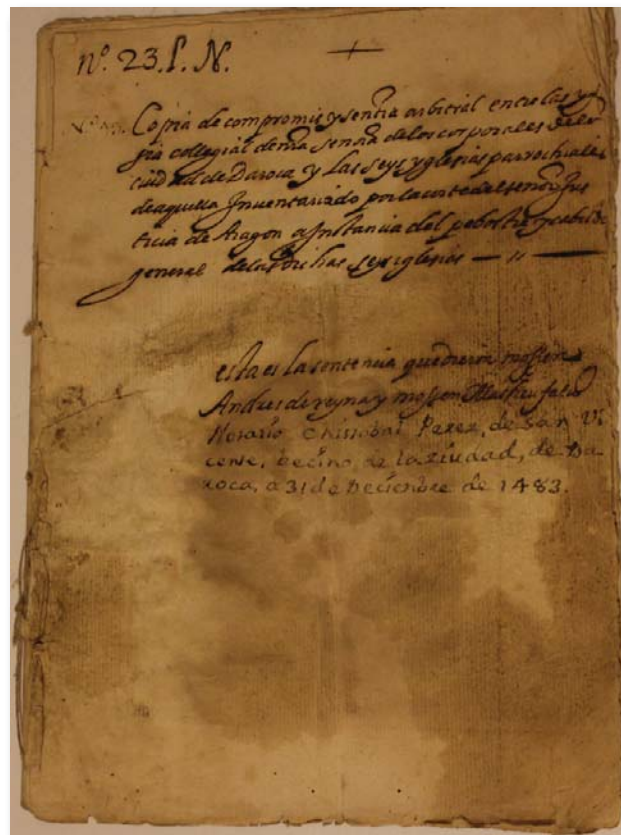 nº. 23. P. N.
Copia de compromis y sentia arbitral entre las ygl
sia collegial de nra senra de los corporales de la
ciudad de Daroca y las seys yglesias parrochiales
de aquella Inventariado por la corte del senor Jus
ticia de Aragon a Instancia del pebostre y cabildo
general de las dichas seys iglesias
esta es la sentencia que dieron mossen
Andres de reyna y mossen Matheu
Notario Christobal Perez, de San Vi
cente, becino, de la ziudad, de Da
roca, a 31 de Deciembre de 1483.